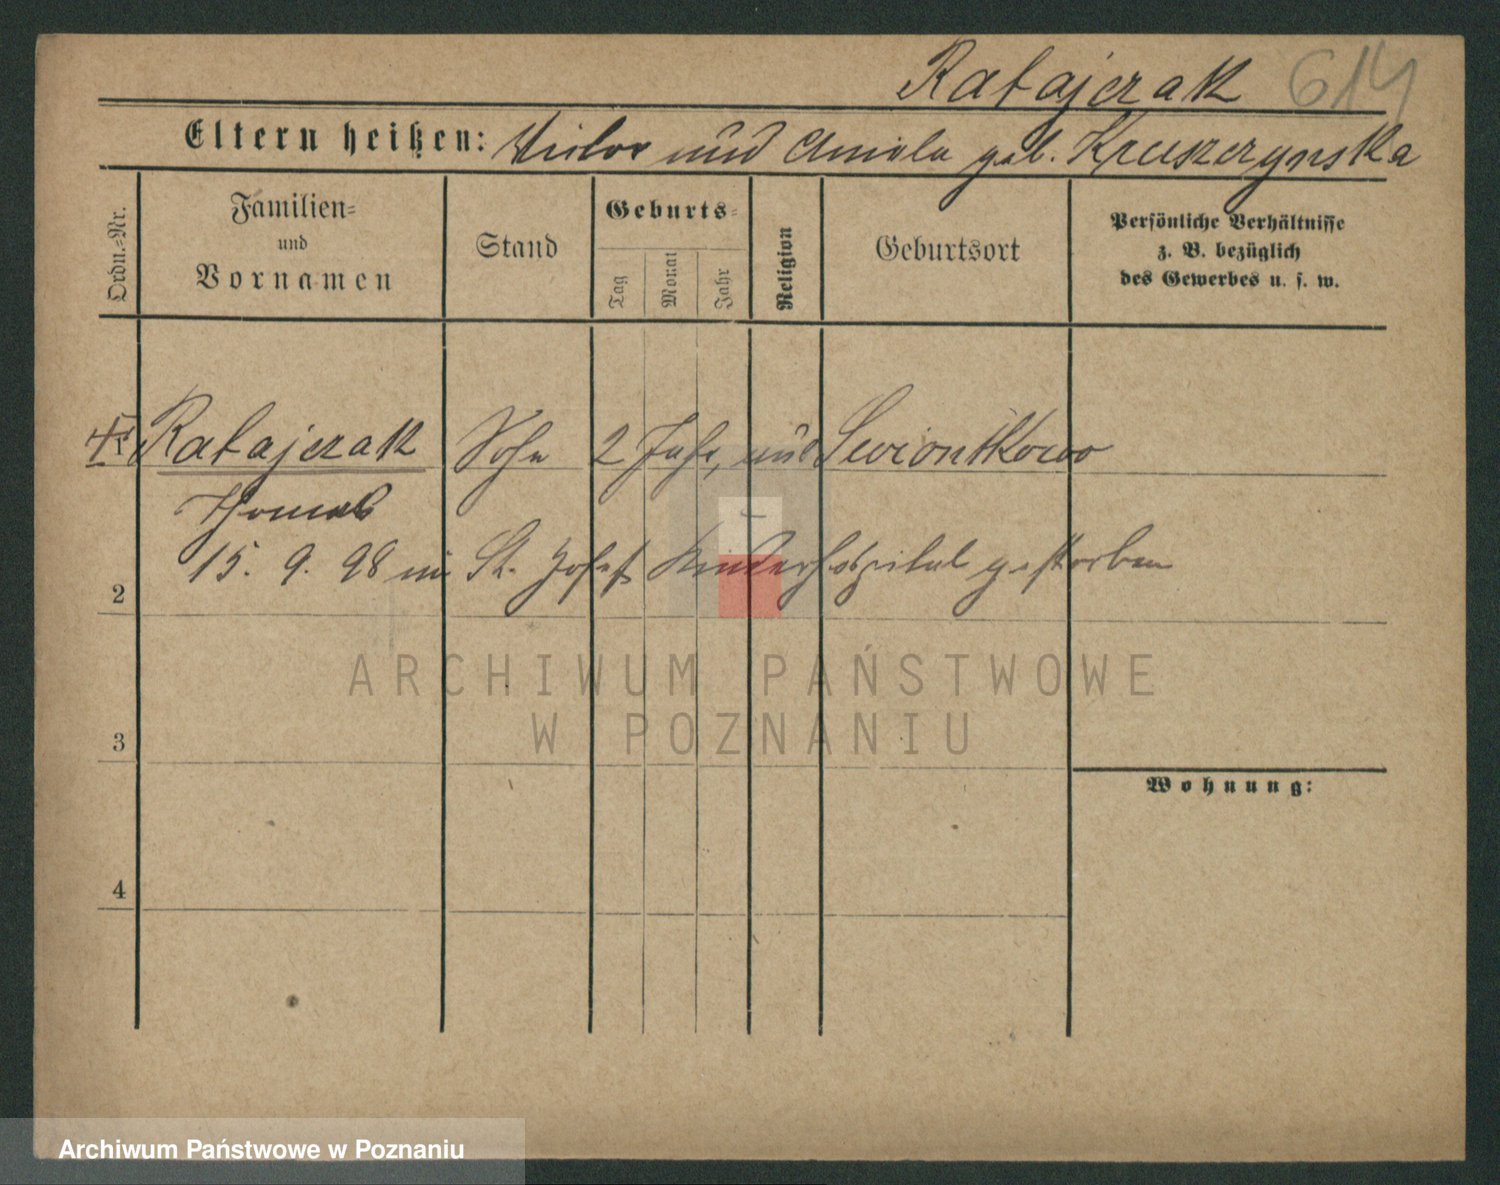 Ratajczak 614
Eltern heißen: Victor und Aniela geb. Kruszczynska
Ordn.-Nr.
Familien-
und
Vornamen
Stand
Geburts-
Tag
Monat
Jahr
Religion
Geburtsort
Persönliche Verhältnisse
z. B. bezüglich
des Gewerbes u. s. w.
Ratajczak Sohn 2 Jahr, aus Swiontkowo
Thomas
15. 9. 98 im St. Josefs Kinderhospital gestorben
2
3
Wohnung:
4
ARCHIWUM PAŃSTWOWE
W POZNANIU
Archiwum Państwowe w Poznaniu